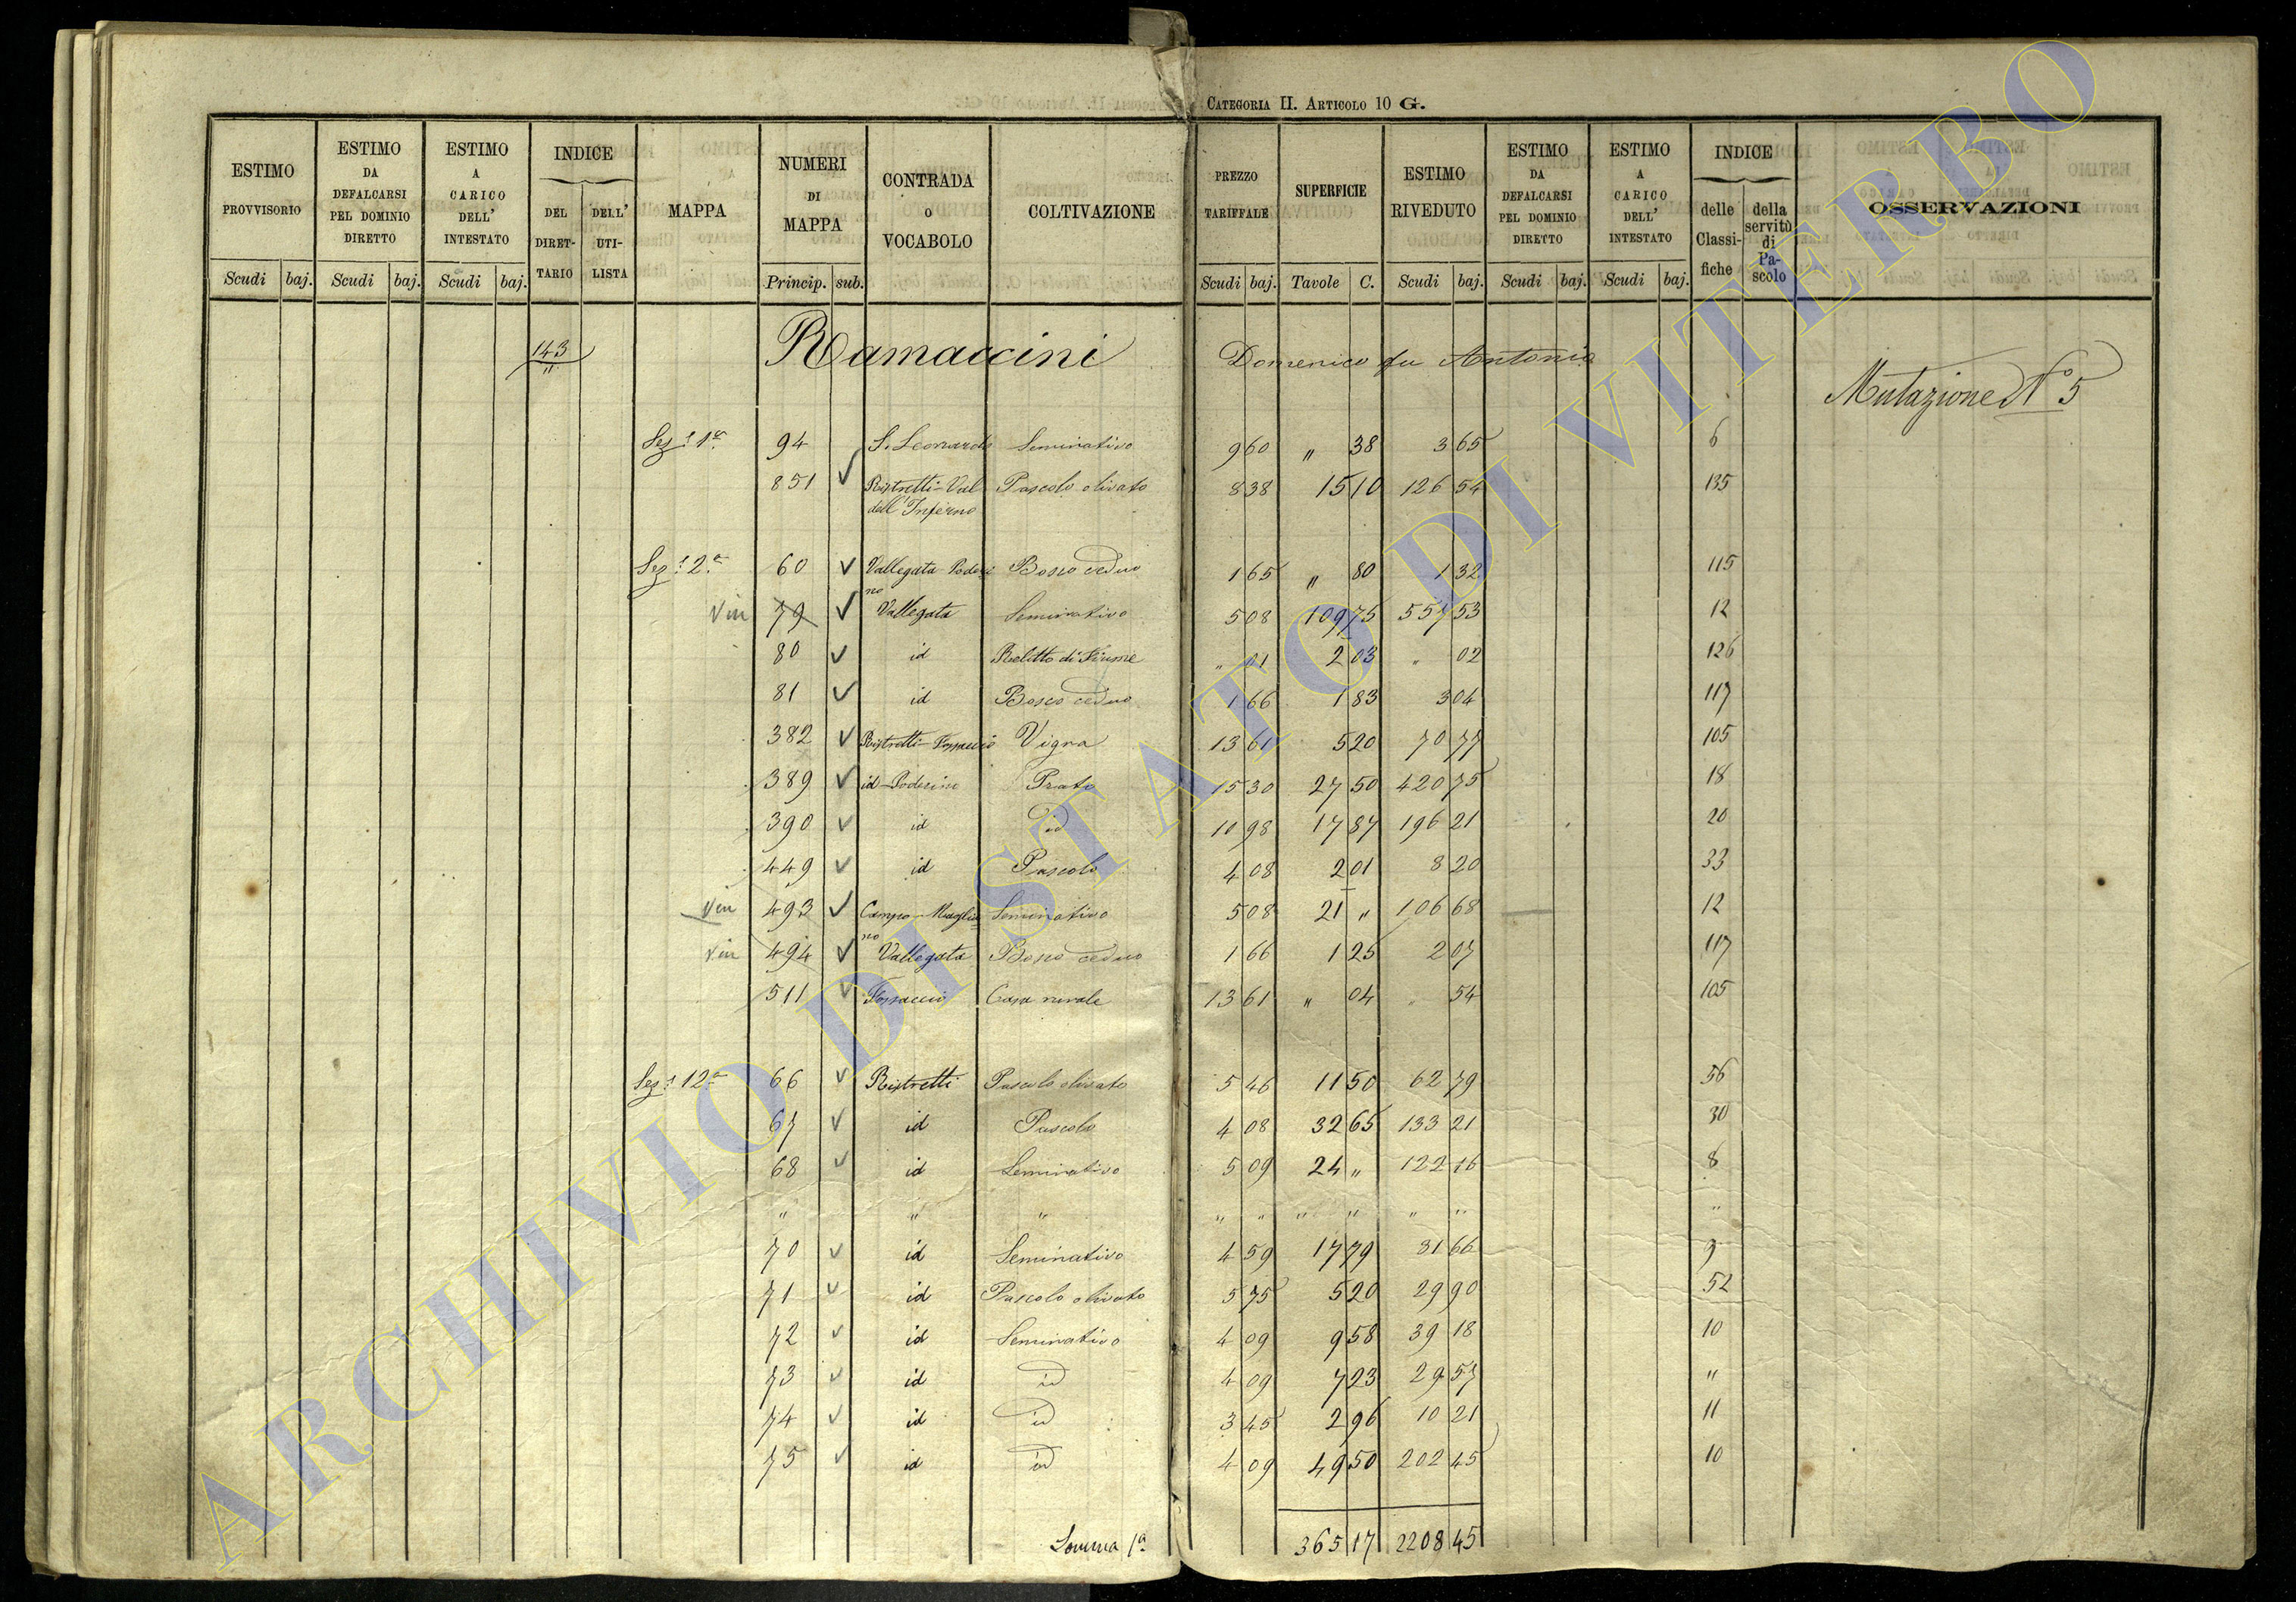 CATEGORIA II. ARTICOLO 10 G.
ESTIMO PROVVISORIO Scudi baj.
ESTIMO DA DEFALCARSI PEL DOMINIO DIRETTO Scudi baj.
ESTIMO A CARICO DELL' INTESTATO Scudi baj.
INDICE DEL DIRETTARIO DELL' UTILISTA
MAPPA
NUMERI DI MAPPA Princip. sub.
CONTRADA O VOCABOLO
COLTIVAZIONE
PREZZO TARIFFALE Scudi baj.
SUPERFICIE Tavole C.
ESTIMO RIVEDUTO Scudi baj.
ESTIMO DA DEFALCARSI PEL DOMINIO DIRETTO Scudi baj.
ESTIMO A CARICO DELL' INTESTATO Scudi baj.
INDICE delle Classifiche della servitù di Pascolo
OSSERVAZIONI
143 Ramaccini Domenico fu Antonio
Mutazione N° 5
Sez: 1ª 94 S. Leonardo Seminativo 9 60 " 38 3 65 6
851 Ristretti-Val dell'Inferno Pascolo olivato 8 38 15 10 126 54 135
Sez: 2ª 60 Vallegata Poderino Bosco ceduo 1 65 " 80 1 32 115
Vin 79 Vallegata Seminativo 5 08 109 75 557 53 12
80 id Relitto di Fiume " 01 2 03 " 02 126
81 id Bosco ceduo 1 66 1 83 3 04 117
382 Ristretti-Fossaccio Vigna 13 61 5 20 70 77 105
389 id-Poderino Prato 15 30 27 50 420 75 18
390 id id 10 98 17 87 196 21 20
449 id Pascolo 4 08 2 01 8 20 33
Vin 493 Campo-Magliano Seminativo 5 08 21 " 106 68 12
Vin 494 Vallegata Bosco ceduo 1 66 1 25 2 07 117
511 Fossaccio Casa rurale 13 61 " 04 " 54 105
Sez: 12ª 66 Ristretti Pascolo olivato 5 46 11 50 62 79 56
67 id Pascolo 4 08 32 65 133 21 30
68 id Seminativo 5 09 24 " 122 16 8
" " " " " " " " " "
70 id Seminativo 4 59 17 79 81 66 9
71 id Pascolo olivato 5 75 5 20 29 90 52
72 id Seminativo 4 09 9 58 39 18 10
73 id id 4 09 7 23 29 57 "
74 id id 3 45 2 96 10 21 11
75 id id 4 09 49 50 202 45 10
Somma 1ª 365 17 2208 45
ARCHIVIO DI STATO DI VITERBO